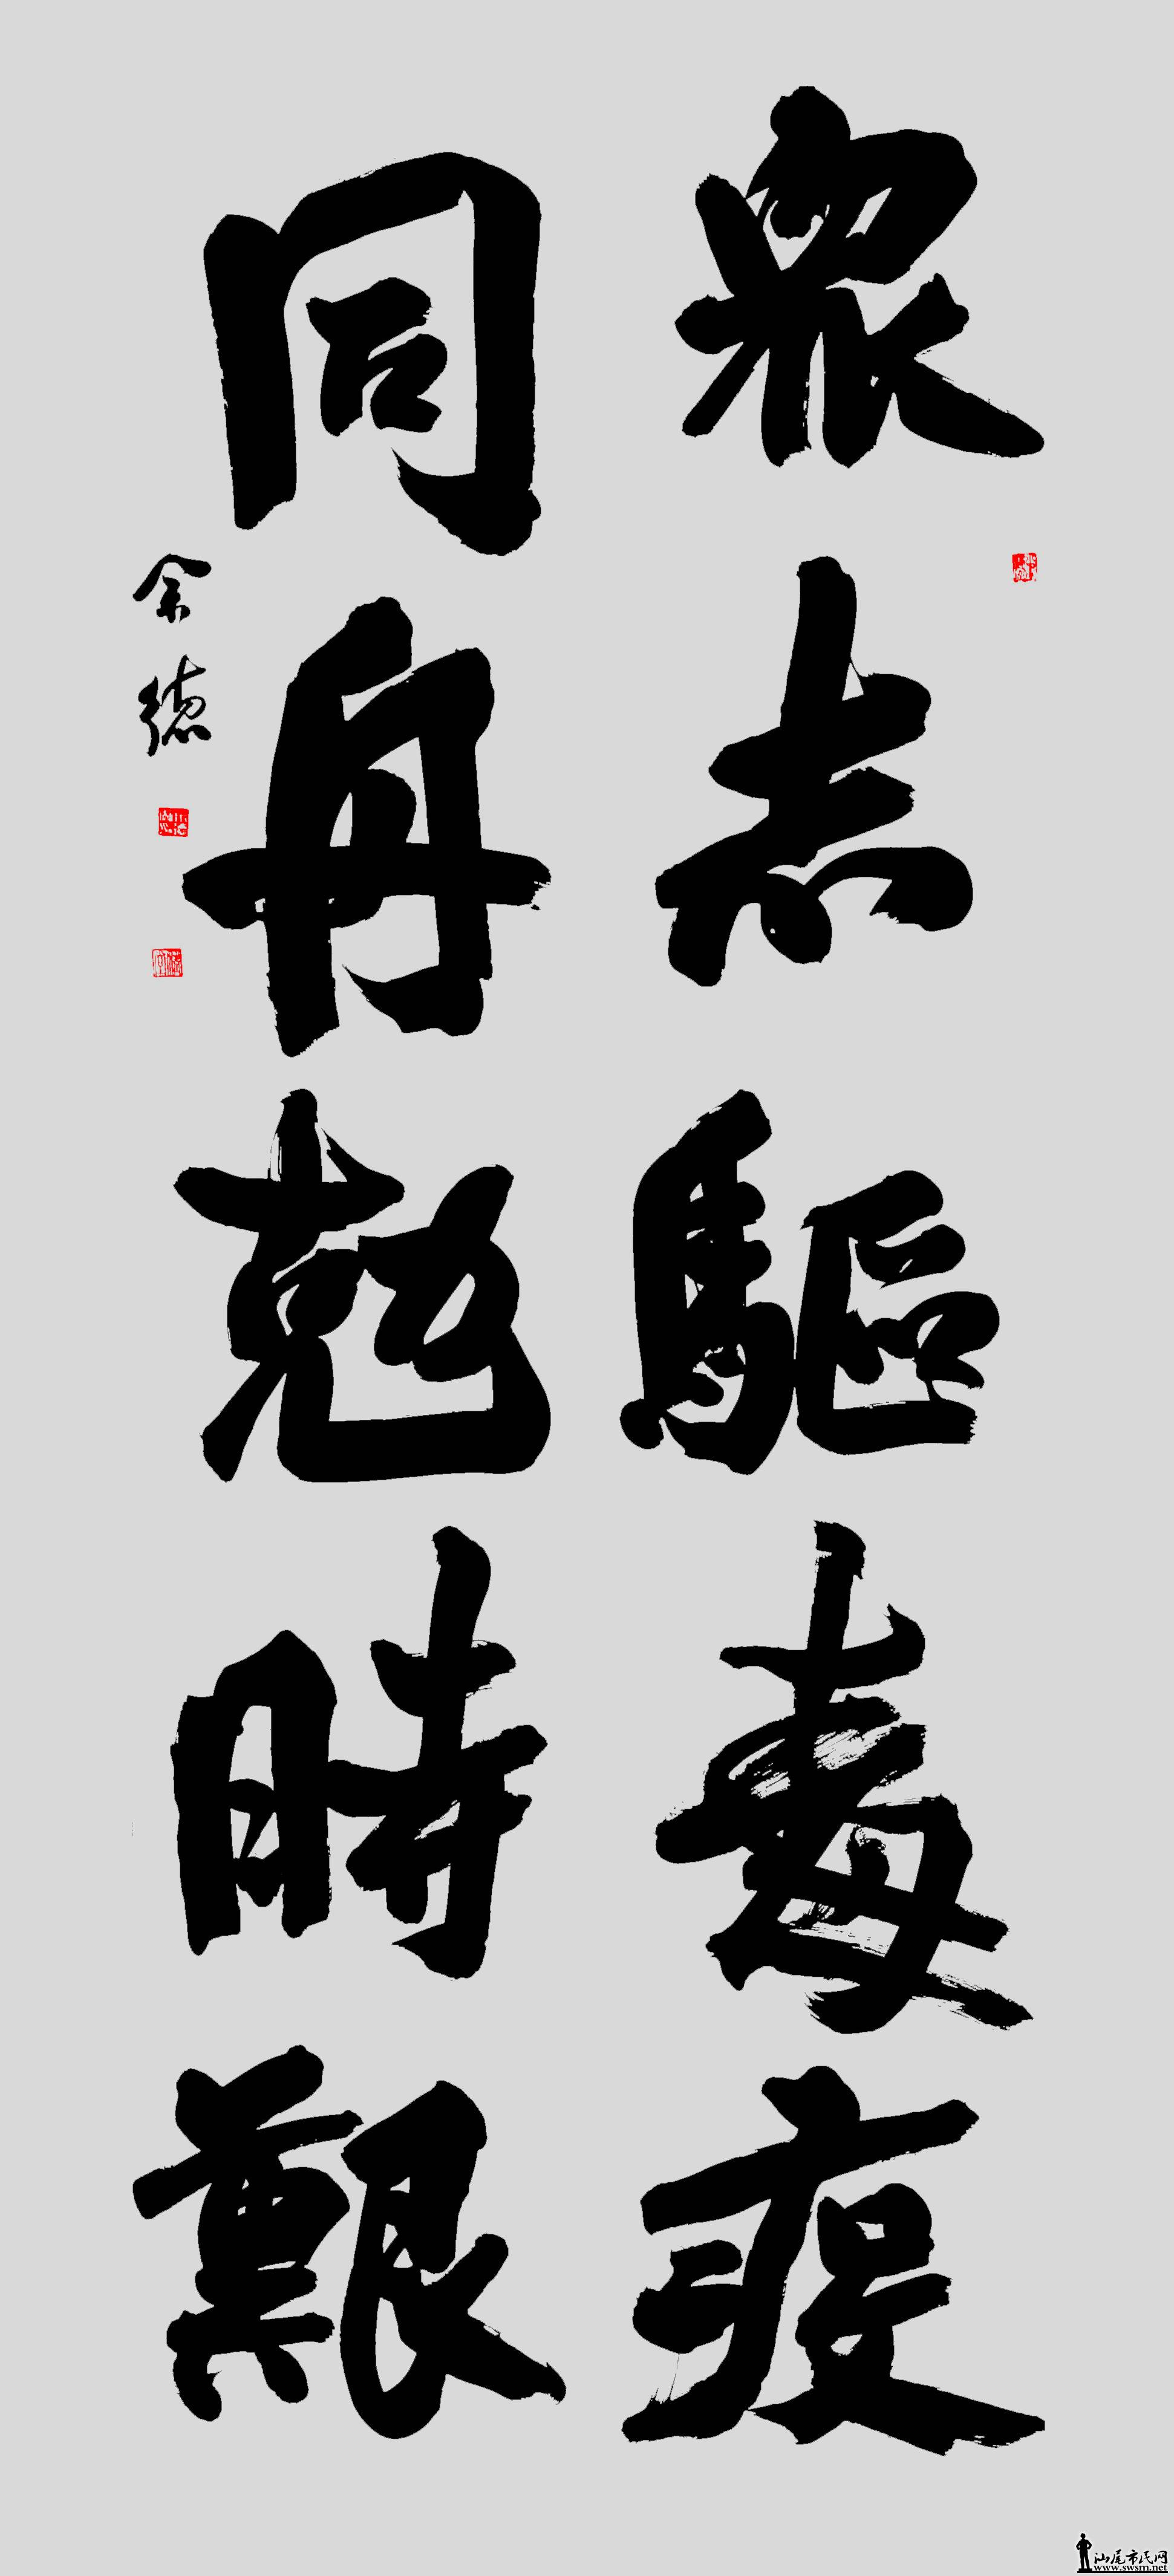 眾志驅毒疫
同舟尅時艱
余德
汕尾市民网
www.swsm.net